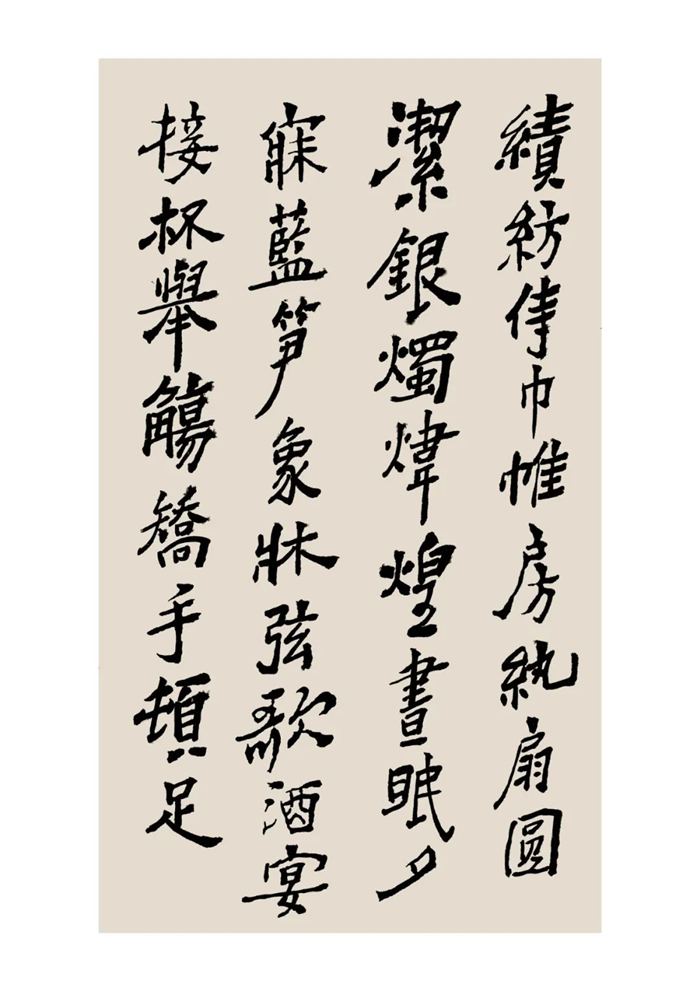 績紡侍巾帷房紈扇圓
潔銀燭煒煌晝眠夕
寐藍笋象牀弦歌酒宴
接杯舉觴矯手頓足